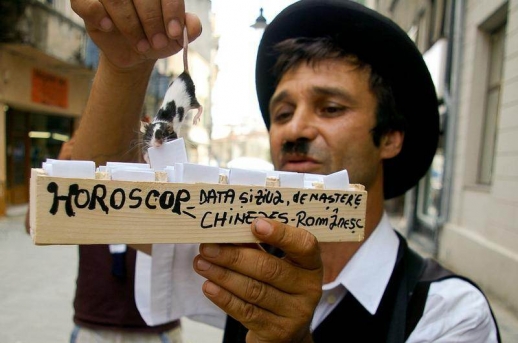 HOROSCOP- DATA SI ZIUA, DE NASTERE
CHINEZES-ROMÂNESC